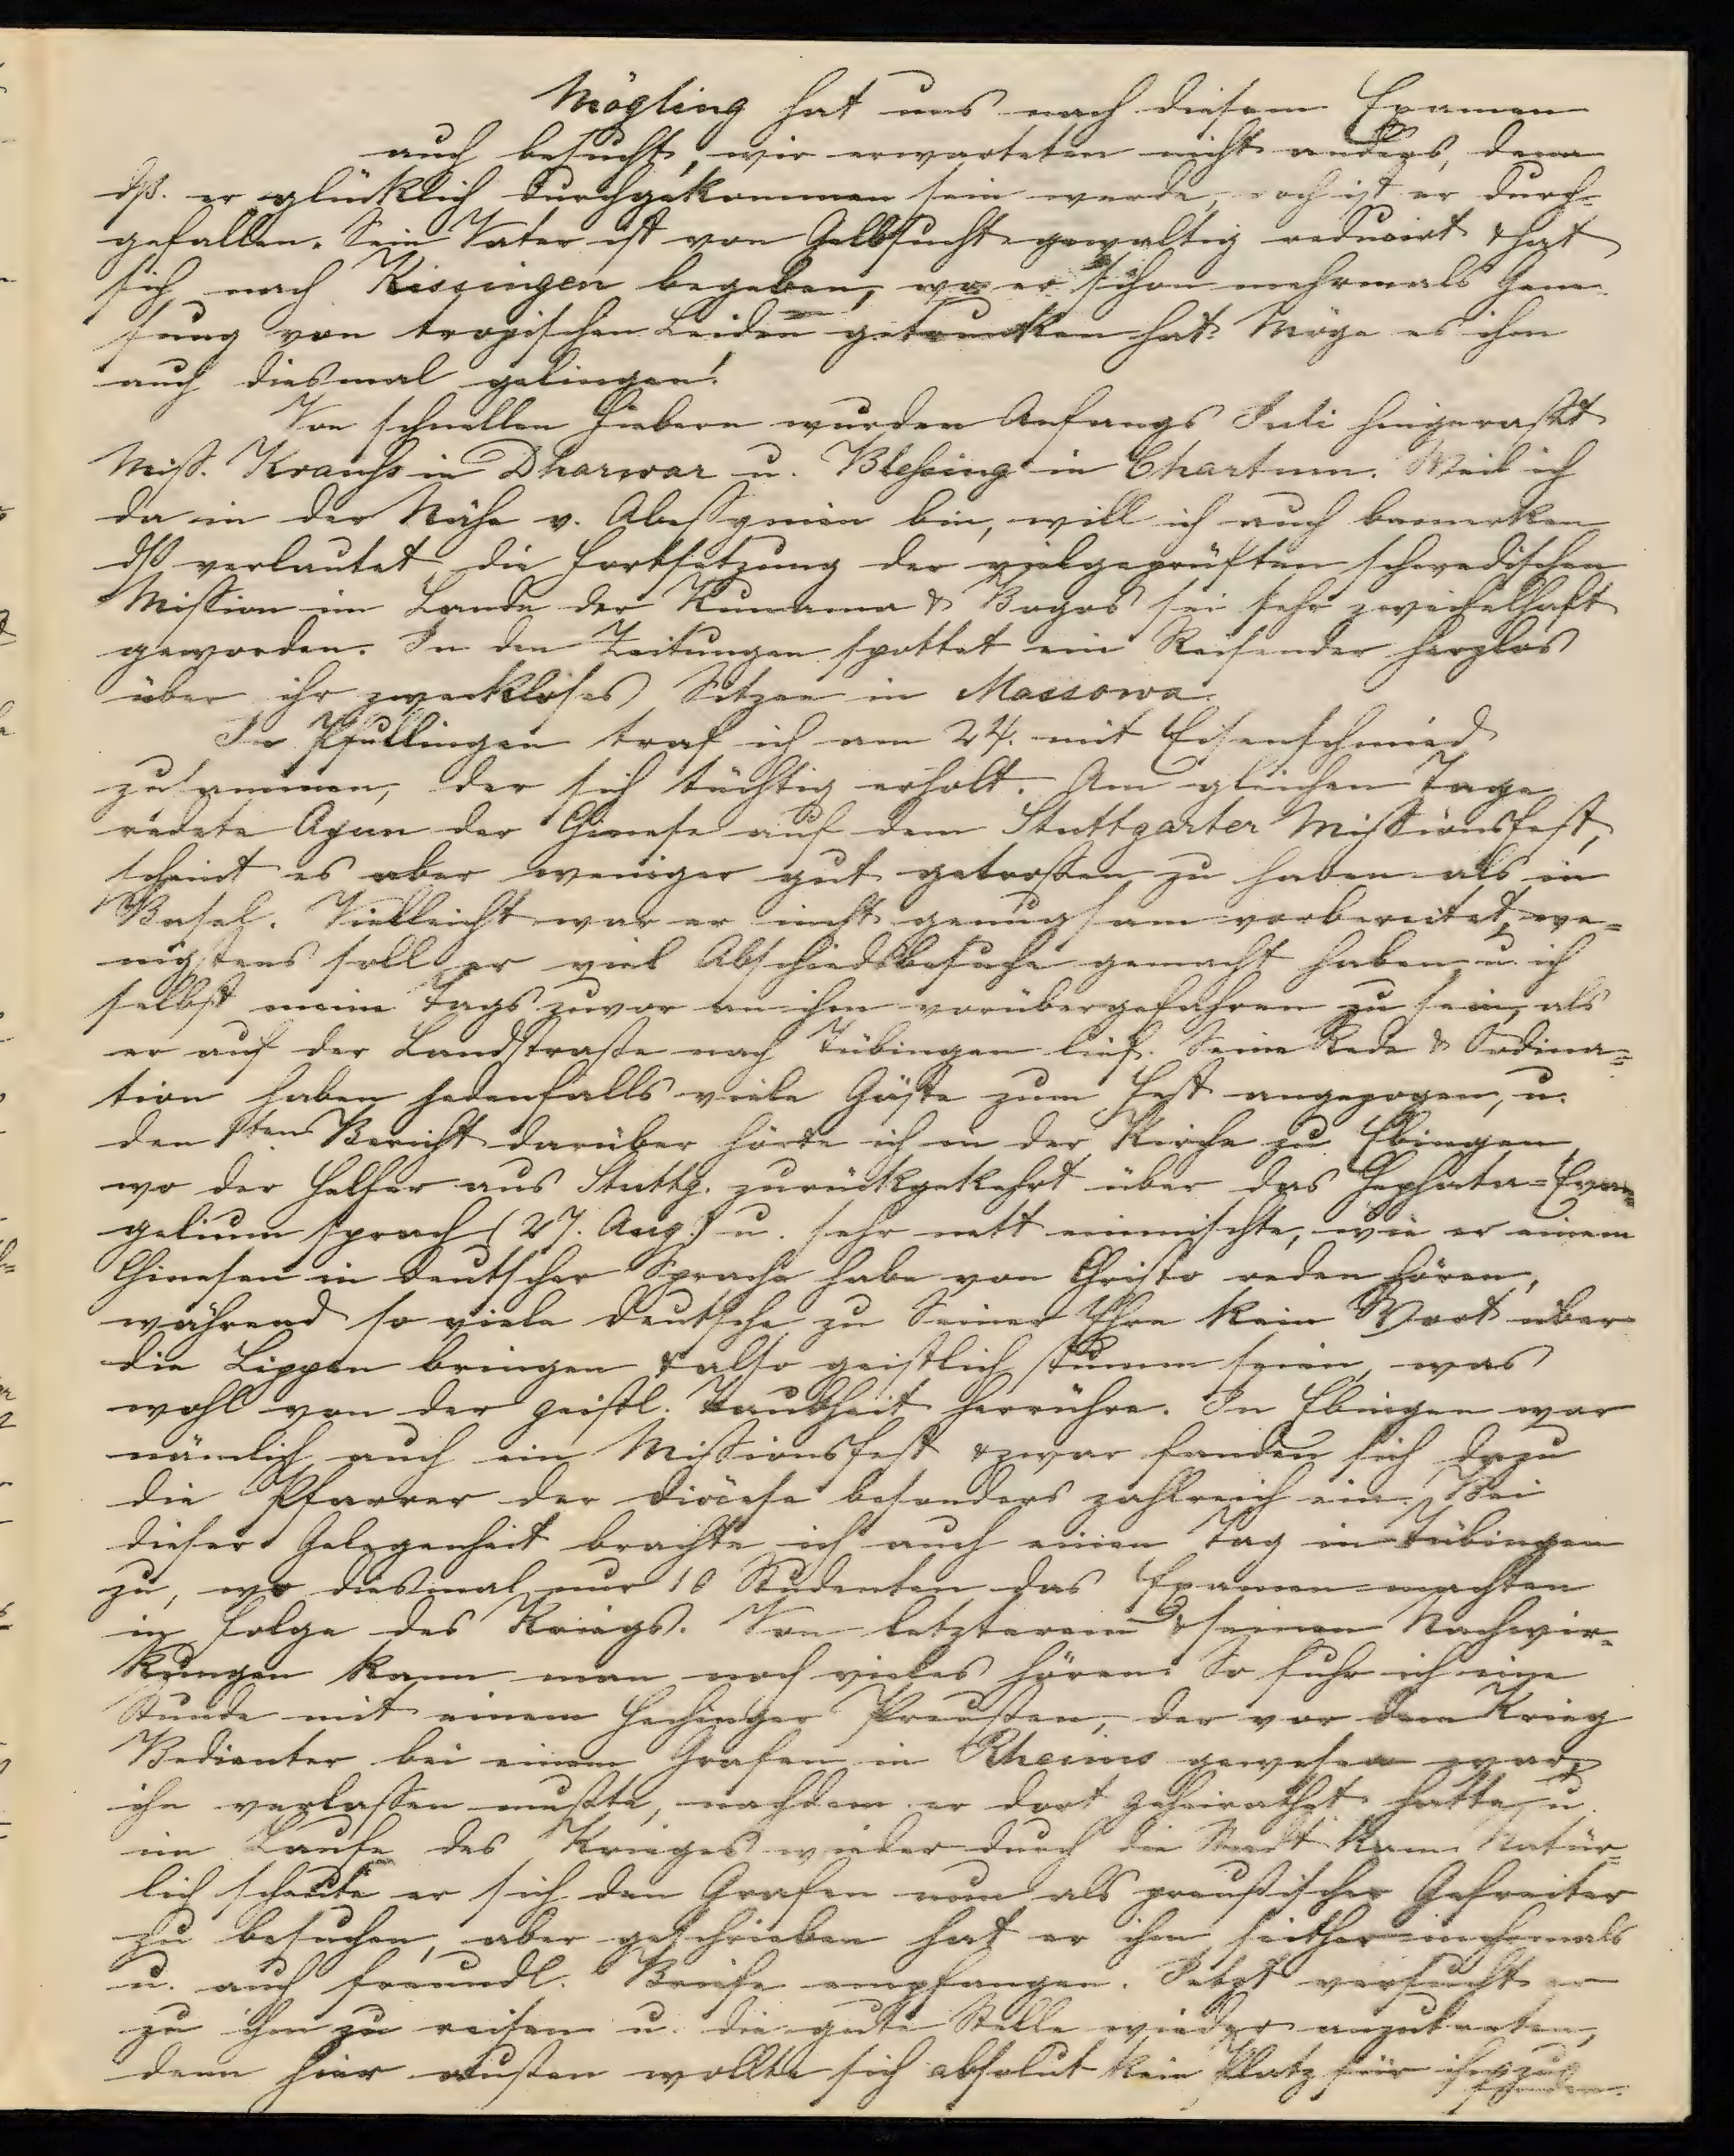 Mögling hat uns nach diesem Examen
auch besucht, wir erwarteten nicht anders, denn
dß. er glücklich durchgekommen sein werde, doch ist er durch-
gefallen. Sein Vater ist von Gelbsucht gewaltig reducirt & hat
sich nach Kissingen begeben, wo er schon mehrmals Gene-
sung von tropischen Leiden getrunken hat. Möge es ihm
auch diesmal gelingen!
Von schnellen Fiebern wurden Anfangs Juli hingerafft
Miss. Krauss in Dharwar u. Blessing in Chartum. Weil ich
da in der Nähe v. Abessynien bin, will ich auch bemerken
dß verlautet die Fortsetzung der vielgeprüften schwedischen
Mission im Lande der Kunama & Bogos sei sehr zweifelhaft
geworden. In den Zeitungen spottet ein Reisender herzlos
über ihr zweckloses Sitzen in Massowa.
In Pfullingen traf ich am 24. mit Eisenschmied
zusammen, der sich tüchtig erholt. Am gleichen Tage
redete Agun der Chinese auf dem Stuttgarter Missionsfest,
scheint es aber weniger gut getroffen zu haben als in
Basel. Vielleicht war er nicht genugsam vorbereitet, we-
nigstens soll er viel Abschiedsbesuche gemacht haben, u. ich
selbst meine Tags zuvor an ihm vorübergefahren zu sein, als
er auf der Landstraße nach Tübingen lief. Seine Rede & Ordina-
tion haben jedenfalls viele Gäste zum Fest angezogen, u.
den 1sten Bericht darüber hörte ich in der Kirche zu Ebingen
wo der Helfer aus Stuttg. zurückgekehrt über das Hephata-Evan-
gelium sprach (27. Aug.) u. sehr nett einmischte, wie er einen
Chinesen in deutscher Sprache habe von Christo reden hören,
während so viele Deutsche zu Seiner Ehre kein Wort über
die Lippen bringen & also geistlich stumm seien, was
wohl von der geistl. Taubheit herrühre. In Ebingen war
nämlich auch ein Missionsfest & zwar fanden sich dazu
die Pfarrer der Diöcese besonders zahlreich ein. Bei
dieser Gelegenheit brachte ich auch einen Tag in Tübingen
zu, wo diesmal nur 10 Studenten das Examen machten
in Folge des Kriegs. Von letzterem & seinen Nachwir-
kungen kann man noch vieles hören. So fuhr ich eine
Stunde mit einem Hechinger Preußen, der vor dem Krieg
Bedienter bei einem Grafen in Rheims gewesen war,
ihn verlassen mußte, nachdem er dort geheirathet hatte, u.
im Laufe des Krieges wieder durch die Stadt kam. Natür-
lich scheute er sich den Grafen nun als preußischer Gefreiter
zu besuchen, aber geschrieben hat er ihm seither mehrmals
u. auch freundl. Briefe empfangen. Jetzt versucht er
zu ihm zu reisen u. die gute Stelle wieder anzutreten,
denn hier außen wollte sich absolut kein Platz für ihn zu
finden.